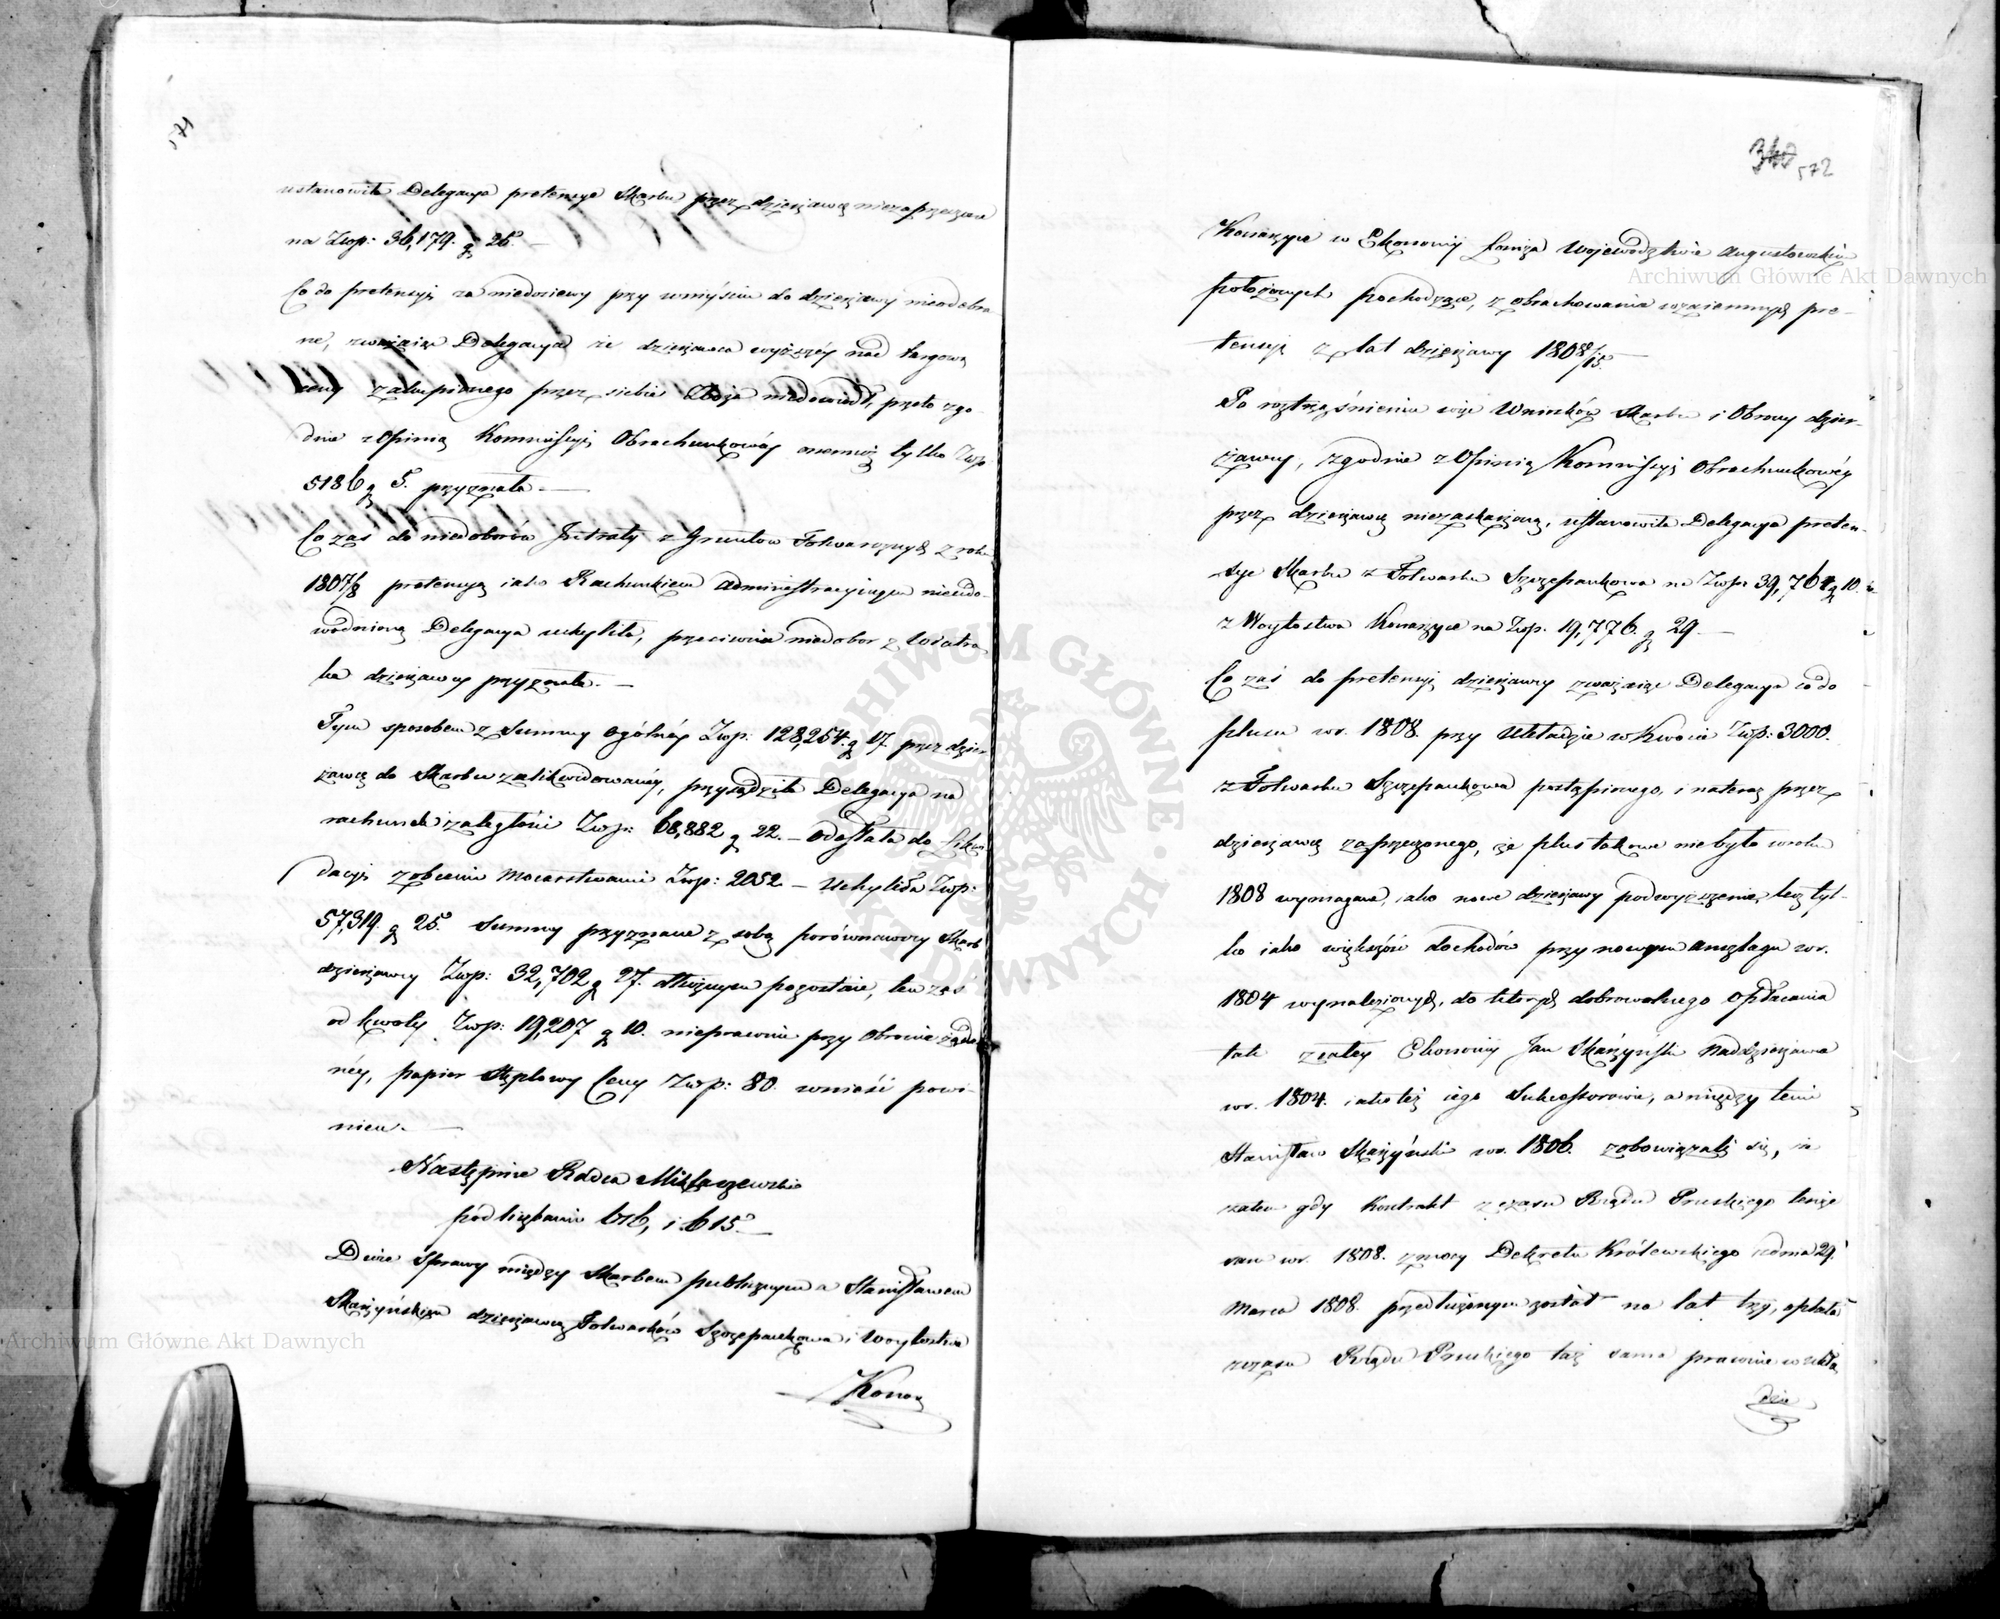 571
ustanowiła Delegacya pretensye Skarbu przez dzierżawcę niezaprzeczone
na Złp: 36,179. g 26. —
Co do pretensyi za niedosiewy przy wniyściu do dzierżawy nieodebra-
ne, zważając Delegacya że dzierżawca wyższéy nad targową
ceny zakupionego przez siebie Zboża niedowiódł, przeto zgo-
dnie z Opinią Kommissyi Obrachunkowéy onemuż tylko Złp
5186 g 5. przyznała. —
Co zaś do niedoborów Intraty z Gruntów Folwarcznych z roku
1807/8 pretensyą iako Rachunkiem administracyinym nieudo-
wodnioną Delegacya uchyliła, przeciwnie niedobor z Wiatra-
ka dzierżawcy przyznała. —
Tym sposobem z Summy ogólnéy Złp: 128,254. g 17. przez dzier-
żawcę do Skarbu zalikwidowanéy, przysądziła Delegacya na
rachunek zaległości Złp: 68,882 g 22. — odesłała do Likwi
dacyi z obcemi Mocarstwami Złp: 2052 — Uchyliła Złp:
57,319. g 25. Summy przyznane z sobą porównawszy Skarb
dzierżawcy Złp: 32,702 g 27. dłużnym pozostaie, ten zaś
od kwoty Złp: 19,207 g 10. nieprawnie przy obronie żąda-
néy, papier stęplowy Ceny Złp: 80. wnieść powi-
nien. —
Następnie Radca Miklaszewski
pod liczbami 616, i 615. —
Dwie sprawy między Skarbem publicznym a Stanisławem
Skarżyńskim dzierżawcą Folwarków Szczepankowa i Woytostwa
Konarz
340 572
Konarzyce w Ekonomij Łomża Województwie Augustowskim
położonych pochodzące, z obrachowania wzaiemnych pre-
tensyi z lat dzierżawy 1808/15. —
Po roztrząśnieniu więc Wniosków Skarbu i Obrony dzier-
żawcy, zgodnie z Opinią Kommissyi Obrachunkowéy
przez dzierżawcę niezaskarżoną, ustanowiła Delegacya preten-
sye Skarbu z Folwarku Szczepankowa na Złp: 39,764 g 10. a
z Woytostwa Konarzyce na Złp. 19,776. g 29. —
Co zaś do pretensyi dzierżawcy zważając Delegacya co do
plusu w r. 1808. przy Układzie w Kwocie Złp: 3000.
z Folwarku Szczepankowa postąpionego, i nateraz przez
dzierżawcę zaprzeczonego, że plus takowe nie było w roku
1808 wymagane, iako nowe dzierżawy podwyższenie, lecz tyl-
ko iako większość dochodów przy nowym anszlagu w r.
1804 wynalezionych, do których dobrowolnego opłacania
tak z całey Ekonomij Jan Skarżyński Naddzierżawca
w r. 1804. iako też iego Sukcessorowie, a między temi
Stanisław Skarżyński w r. 1806. zobowiązali się, że
zatem gdy Kontrakt z czasu Rządu Pruskiego tenże
sam w r. 1808. z mocy Dekretu Królewskiego z dnia 29.
Marca 1808. przedłużonym został na lat trzy, opłata
z czasu Rządu Pruskiego taż sama prawnie w ukła
dzie
Archiwum Główne Akt Dawnych
Archiwum Główne Akt Dawnych
ARCHIWUM GŁÓWNE AKT DAWNYCH